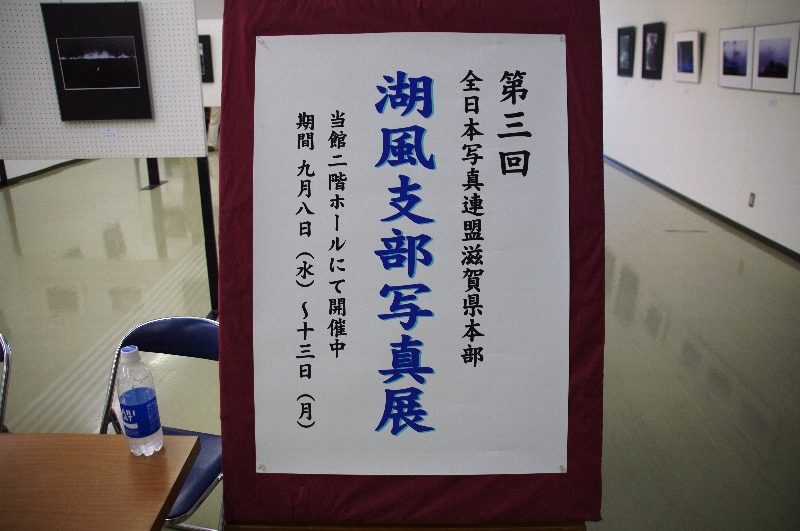 第三回
全日本写真連盟滋賀県本部
湖風支部写真展
当館二階ホールにて開催中
期間 九月八日（水）～十三日（月）